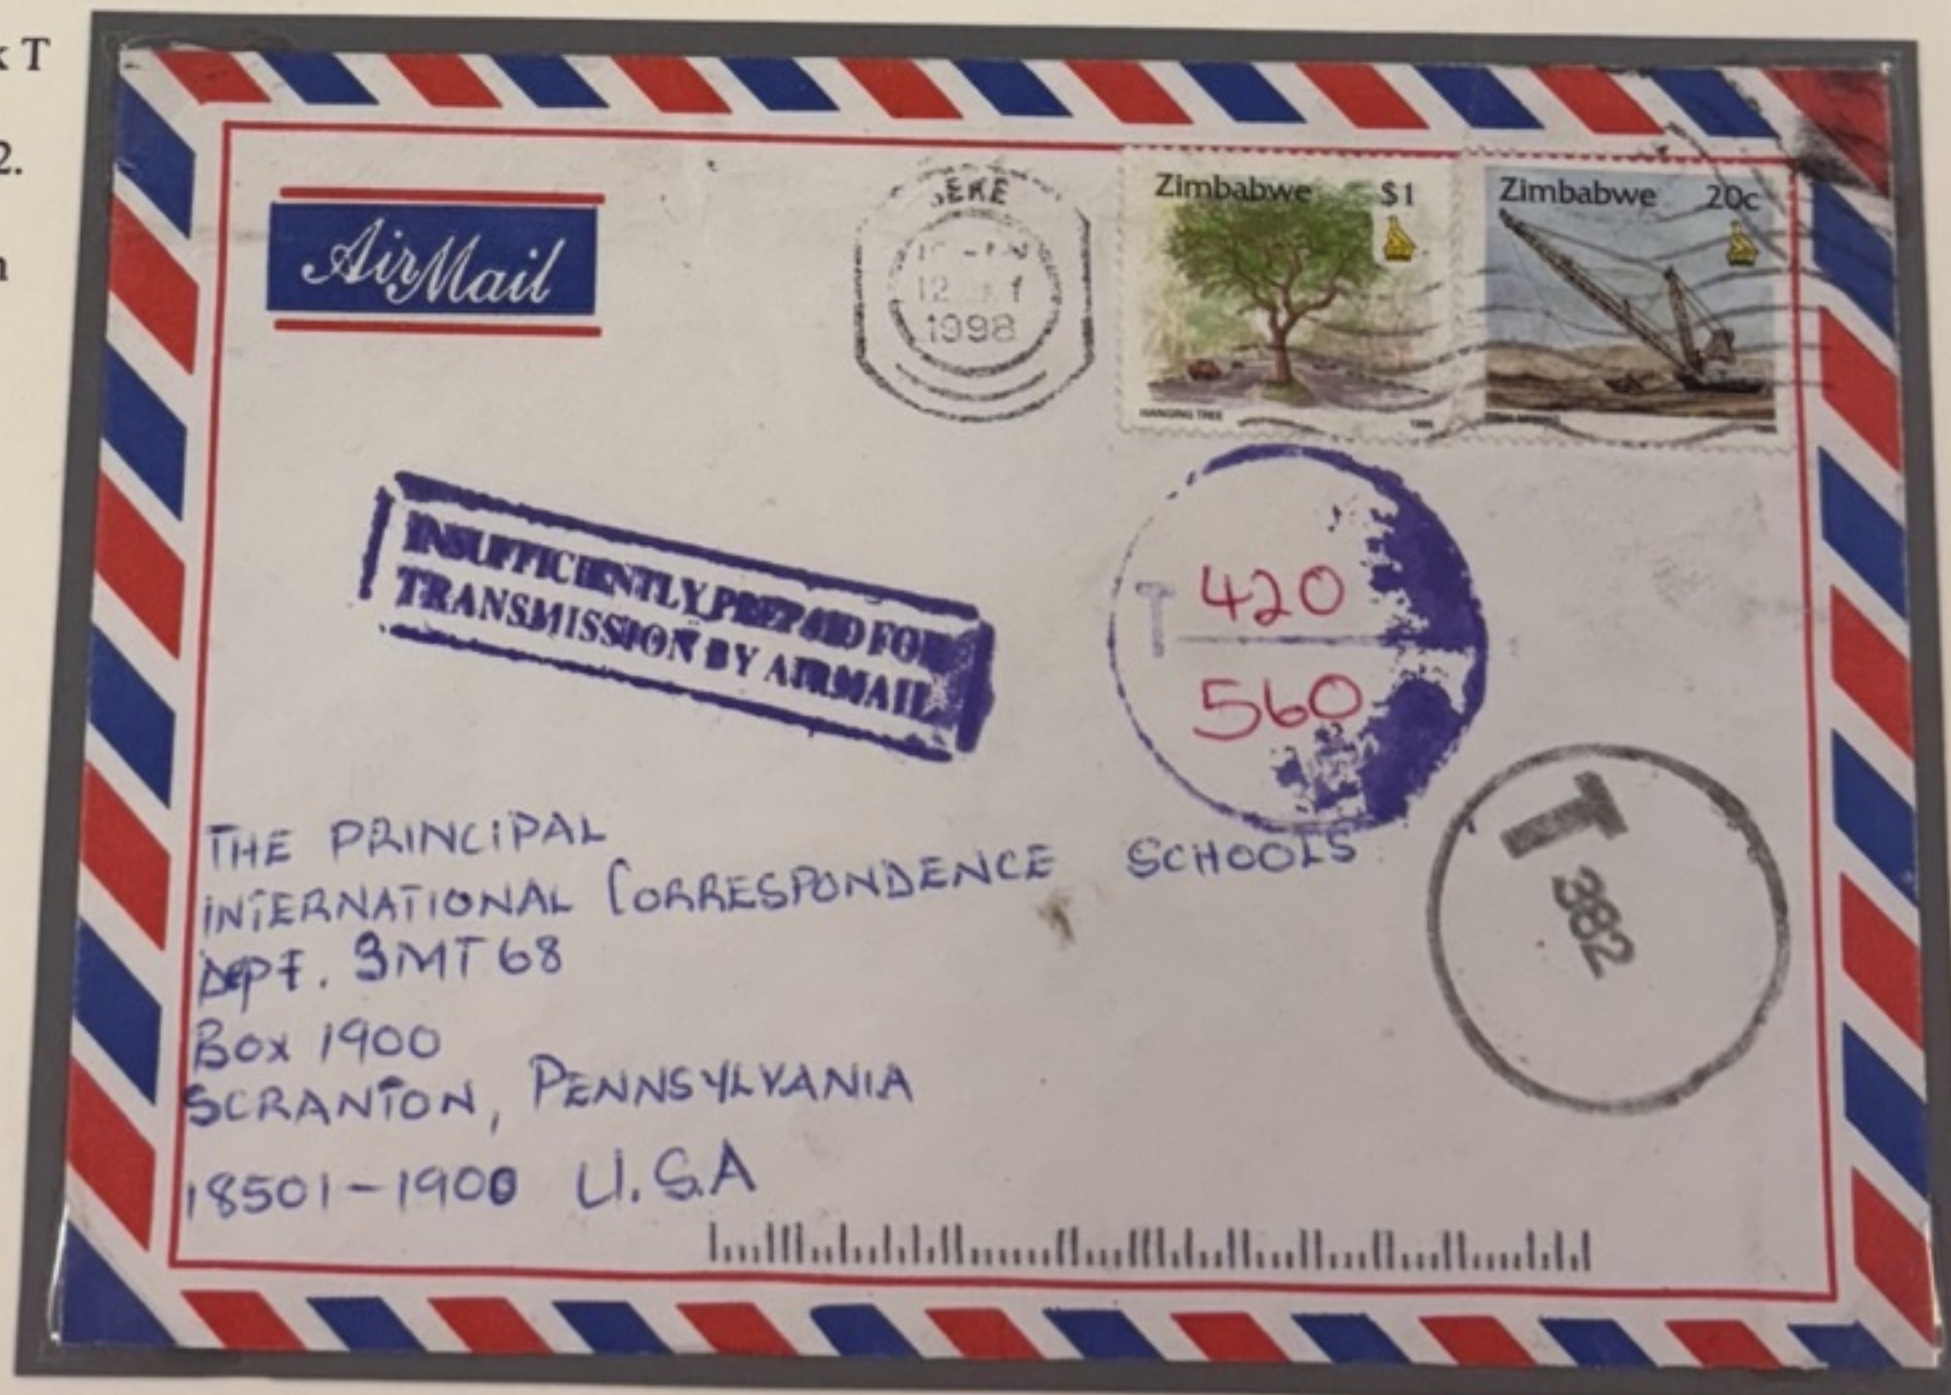 T
2.
AirMail
1998
Zimbabwe $1
HANGING TREE
Zimbabwe 20c
INSUFFICIENTLY PREPAID FOR
TRANSMISSION BY AIRMAIL
T 420
560
T
382
THE PRINCIPAL
INTERNATIONAL CORRESPONDENCE SCHOOLS
DEPT. 3MT68
BOX 1900
SCRANTON, PENNSYLVANIA
18501-1900 U.S.A